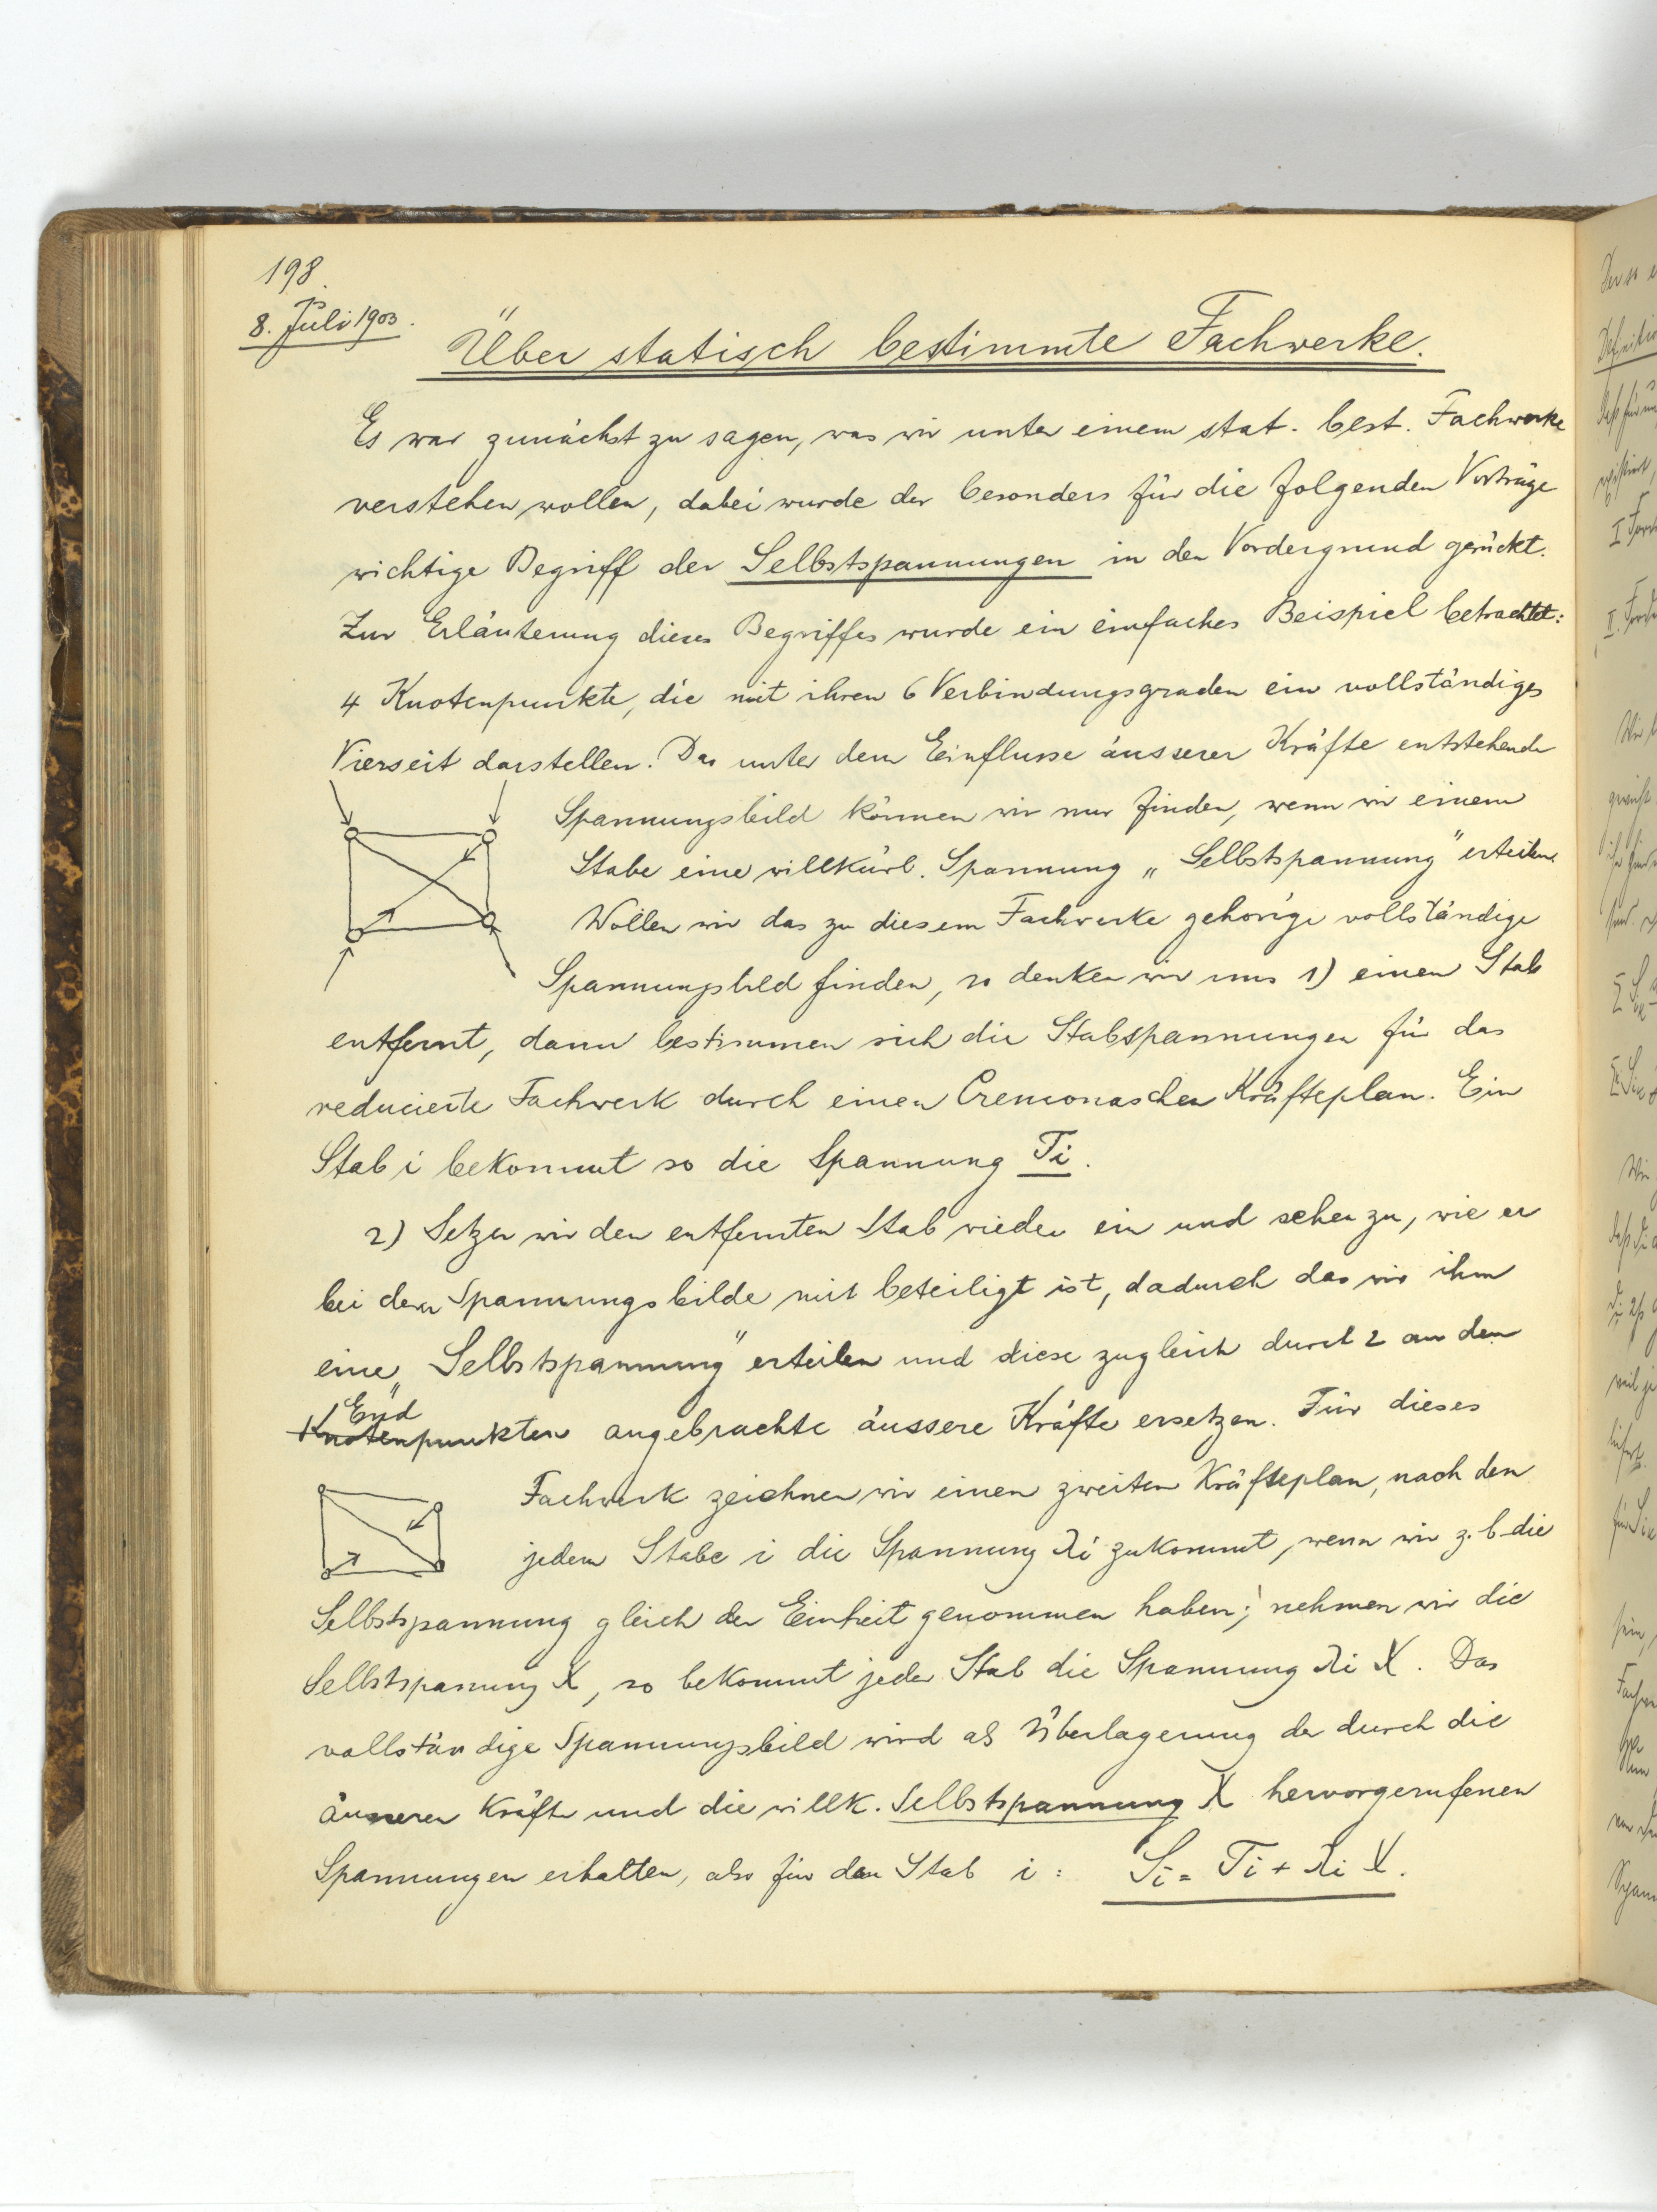 198.
8. Juli 1903.
Über statisch bestimmte Fachwerke.
Es war zunächst zu sagen, was wir unter einem stat. best. Fachwerke
verstehen wollen, dabei wurde der besonders für die folgenden Vorträge
wichtige Begriff der Selbstspannungen in den Vordergrund gerückt.
Zur Erläuterung dieses Begriffes wurde ein einfaches Beispiel betrachtet:
4 Knotenpunkte, die mit ihren 6 Verbindungsgraden ein vollständiges
Vierseit darstellen. Das unter dem Einflusse äusserer Kräfte entstehende
Spannungsbild können wir nur finden, wenn wir einem
Stabe eine willkürl. Spannung „Selbstspannung" erteilen.
Wollen wir das zu diesem Fachwerke gehörige vollständige
Spannungsbild finden, so denken wir uns 1) einen Stab
entfernt, dann bestimmen sich die Stabspannungen für das
reducierte Fachwerk durch einen Cremonaschen Kräfteplan. Ein
Stab i bekommt so die Spannung Ti.
2) Setzen wir den entfernten Stab wieder ein und sehen zu, wie er
bei dem Spannungsbilde mit beteiligt ist, dadurch das wir ihm
eine „Selbstspannung" erteilen und diese zugleich durch 2 an den
End
Knotenpunkten angebrachte äussere Kräfte ersetzen. Für dieses
Fachwerk zeichnen wir einen zweiten Kräfteplan, nach den
jedem Stabe i die Spannung λi zukommt, wenn wir z. b die
Selbstspannung gleich der Einheit genommen haben; nehmen wir die
Selbstspannung X, so bekommt jeder Stab die Spannung λi X. Das
vollständige Spannungsbild wird als Überlagerung der durch die
äusseren Kräfte und die willk. Selbstspannung X hervorgerufenen
Spannungen erhalten, also für den Stab i: Si = Ti + λi X.